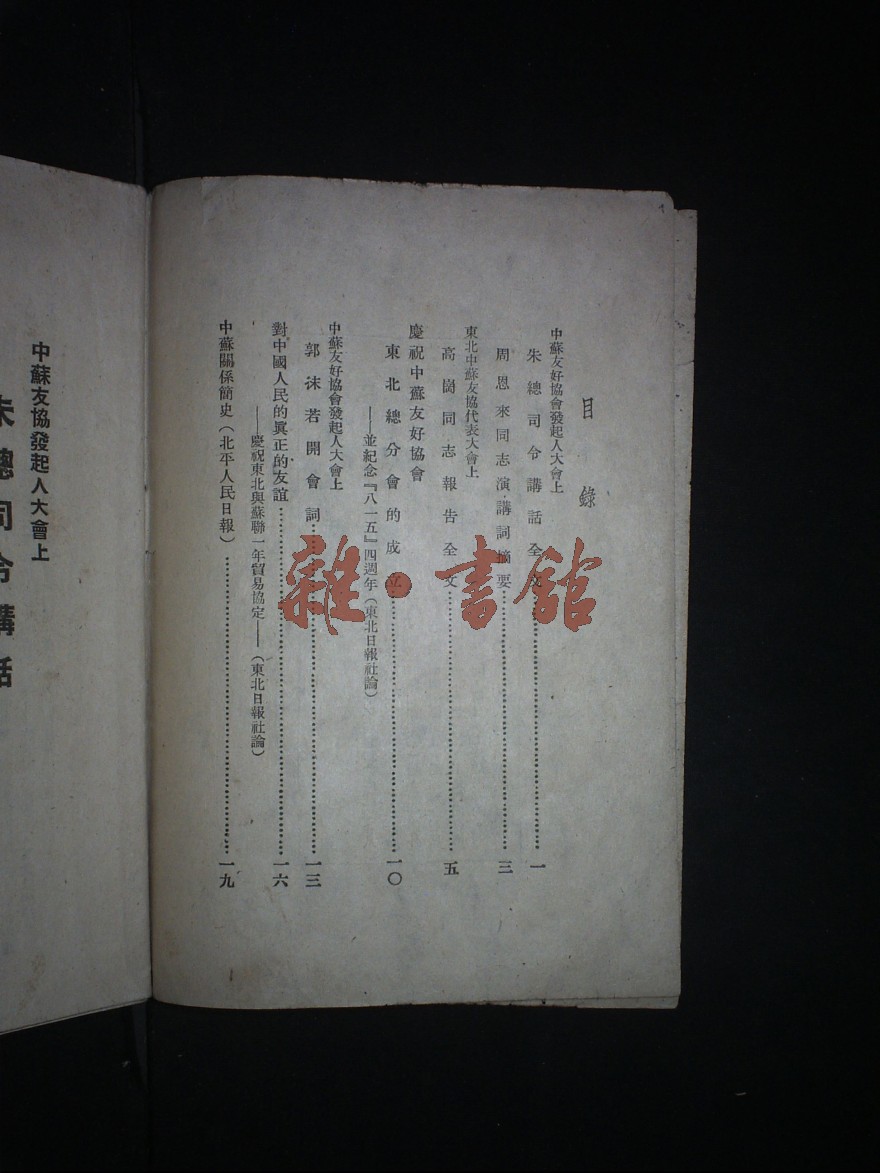 目錄
中蘇友好協會發起人大會上
朱總司令講話全文……一
周恩來同志演講詞摘要……三
東北中蘇友協代表大會上
高崗同志報告全文……五
慶祝中蘇友好協會
東北總分會的成立……一〇
——並紀念『八一五』四週年（東北日報社論）
中蘇友好協會發起人大會上
郭沫若開會詞……一三
對中國人民的眞正的友誼……一六
——慶祝東北與蘇聯一年貿易協定——（東北日報社論）
中蘇關係簡史（北平人民日報）……一九
中蘇友協發起人大會上
朱總司令講話
雜·書館